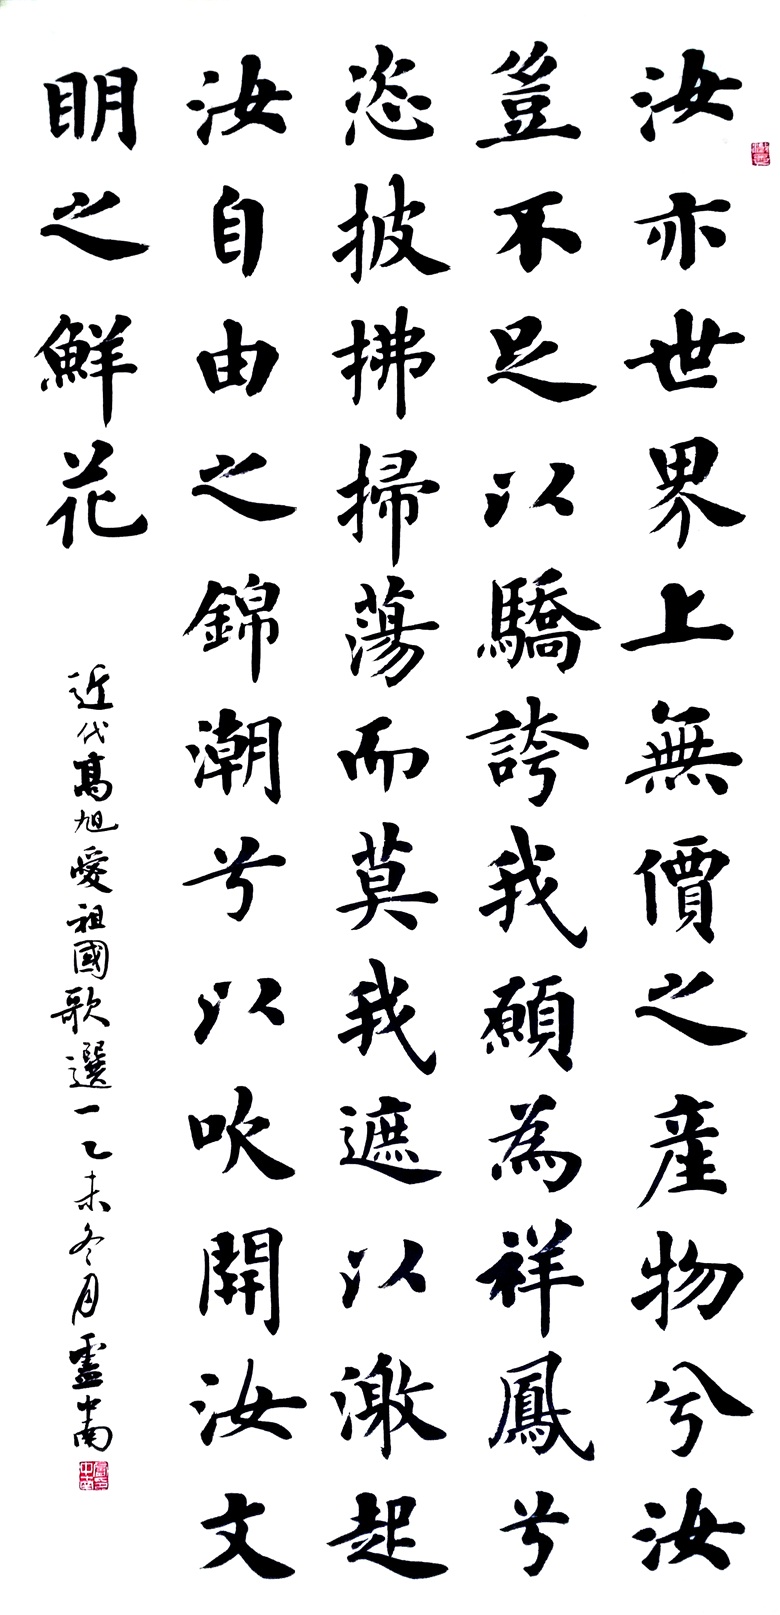 汝亦世界上無價之産物兮汝
豈不足以驕誇我願為祥鳳兮
恣披拂掃蕩而莫我遮以激起
汝自由之錦潮兮以吹開汝文
明之鮮花
近代髙旭愛祖國歌選一乙未冬月盧中南